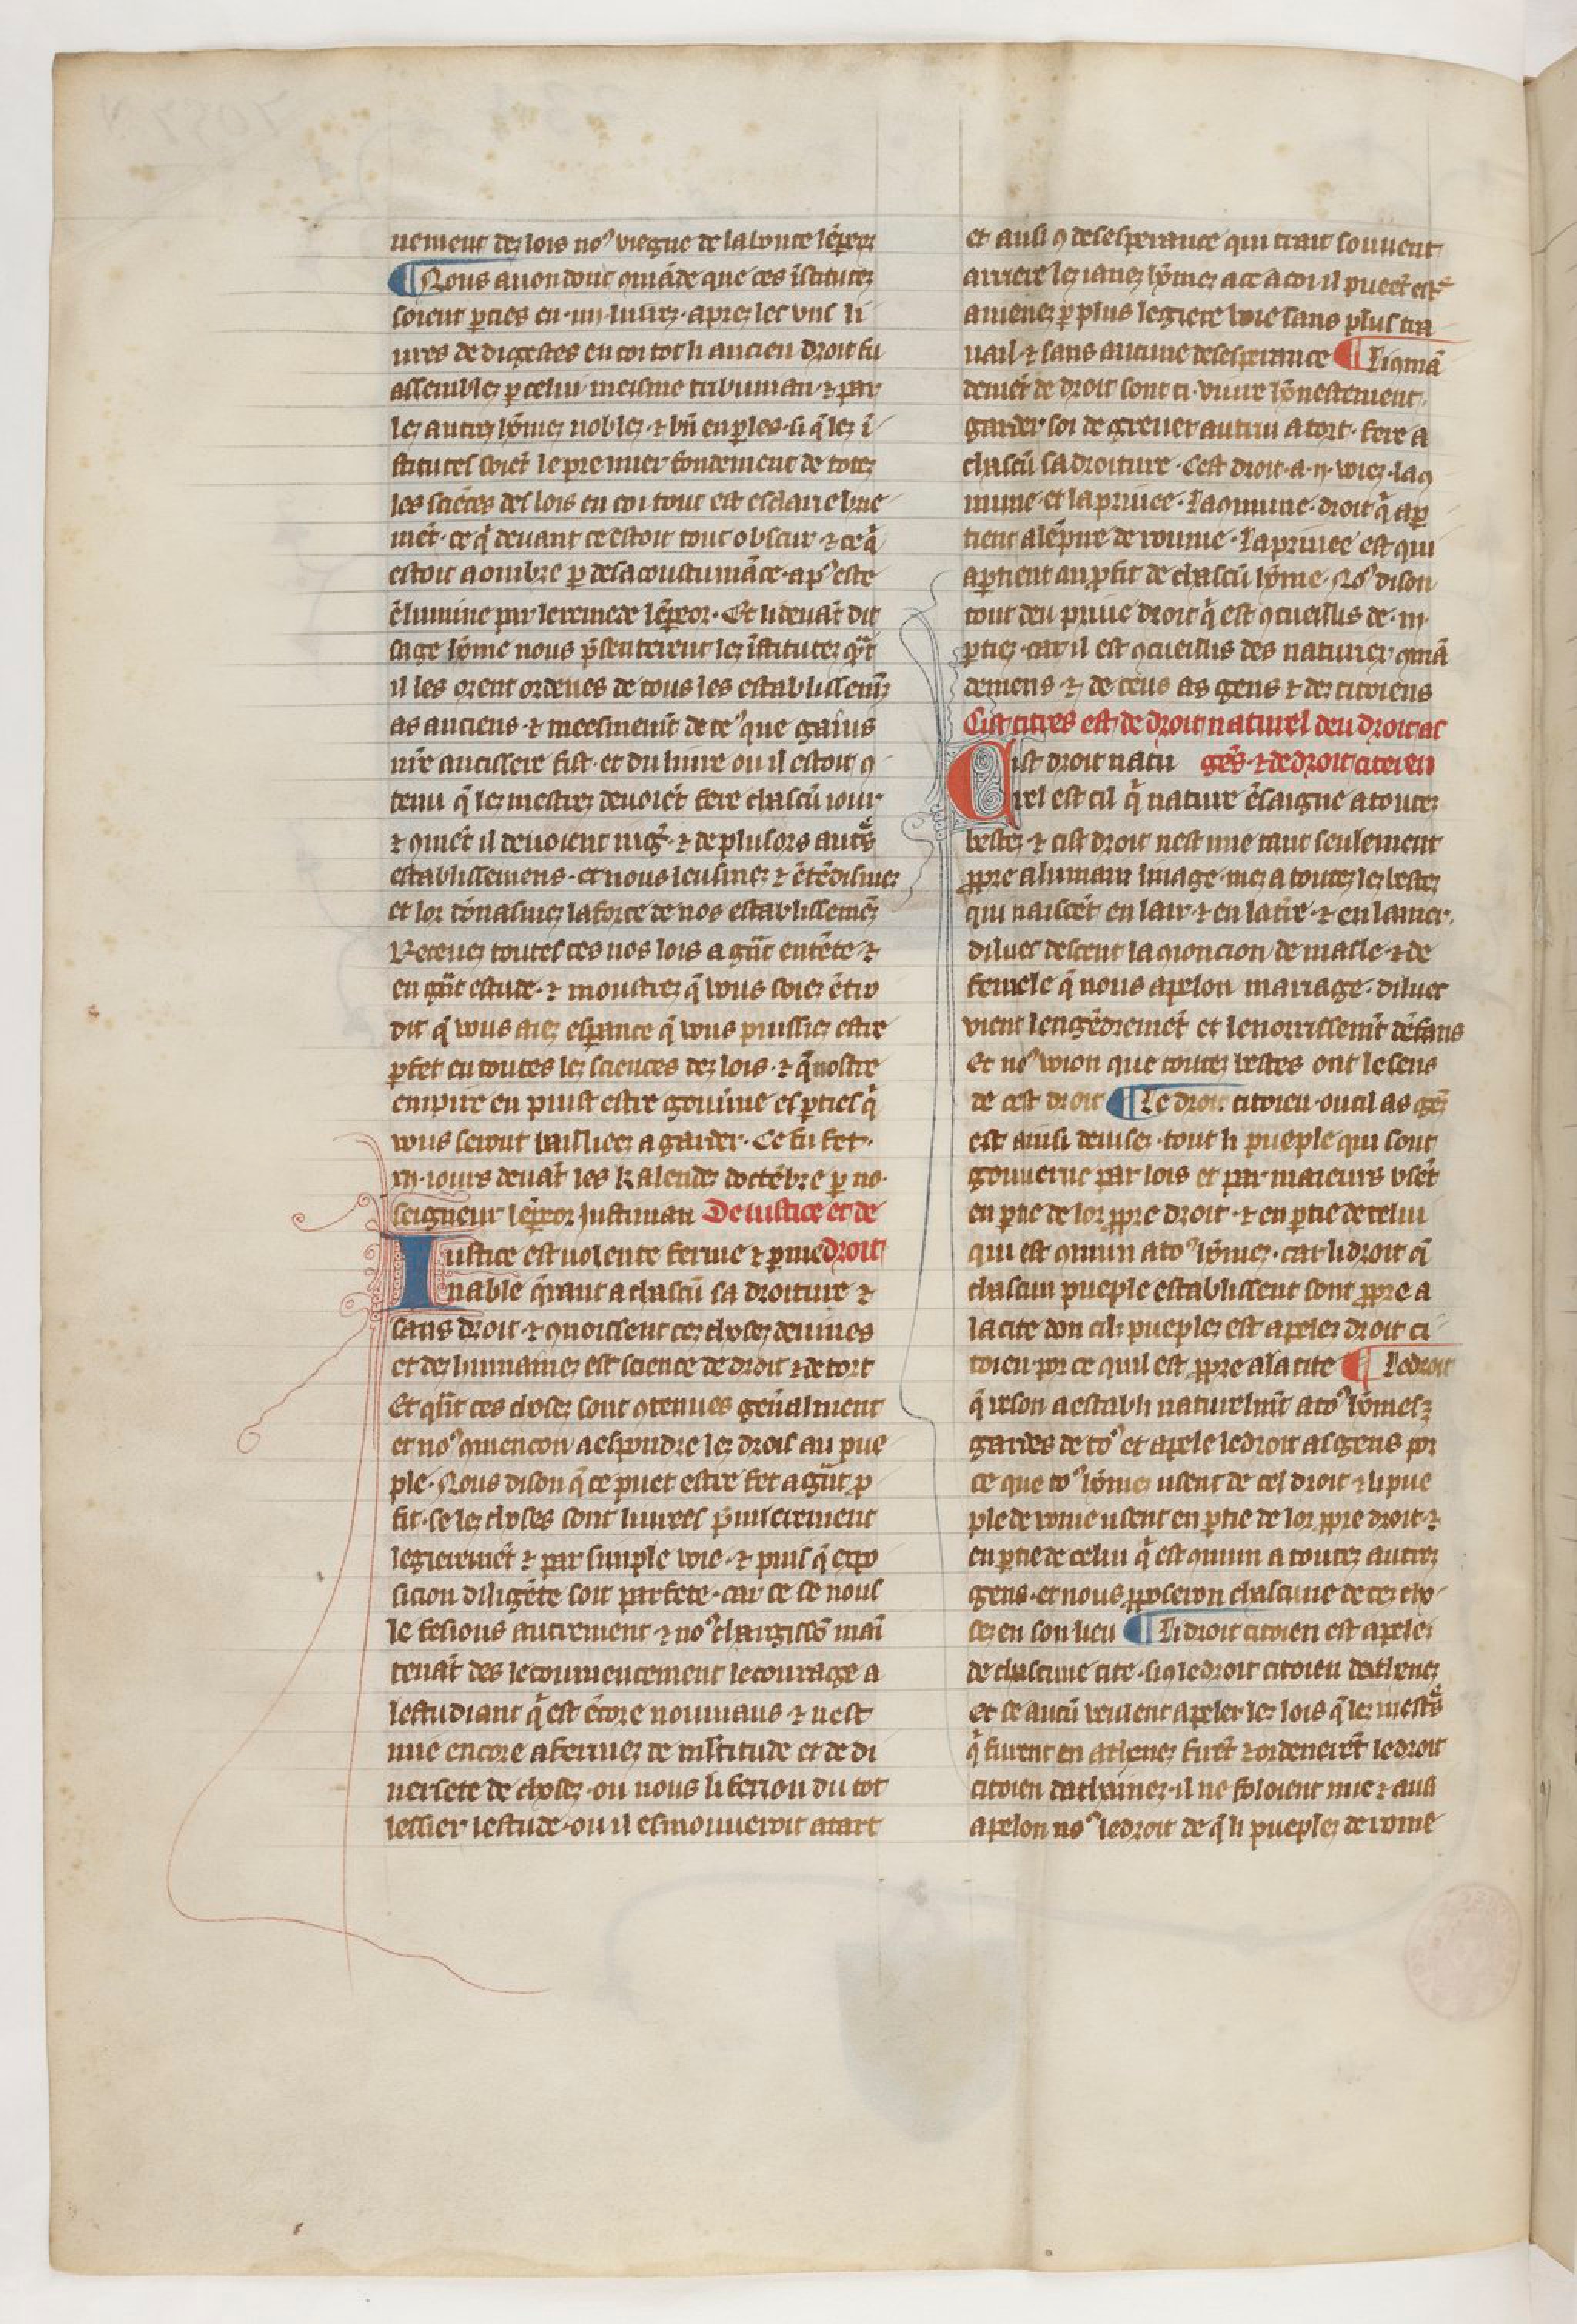 uement dez lois no⁹ viegne de la bonte lēpeor
¶ Nous auon donc ꝯmāde que ces īstitutez
soient ꝑties en .iiii. liurez. aprez les vnc li
ures de digestes en coi tot li ancien droit fu
assemblez ꝑ celui meisme tribunian ⁊ par
lez autrez hōmez noblez ⁊ bñ enꝑles. si q̄ lez ī
stitutes soiēt le premier fondement de totez
les sciēces des lois en coi tout est esclarie brie
mēt. ce q̇ deuant ce estoit tout obscur ⁊ ce q̇
estoit aombre ꝑ desacoustumāce. ap⁹ este
ēlumine par le remede lēpeor. Et li deuāt dit
sage hōme nous p̄senterent lez īstitutez qͣt
il les orent ordenes de tous les establissemz̄
as anciens. ⁊ meesmemt̄ de ce⁹ que gaius
nr̄e ancisseir fist. et du liure ou il estoit ꝯ
tenu q̄ lez mestrez deuoiēt fere chascū iour
⁊ ꝯmēt il deuoient iuḡ. ⁊ de plusors autˢ
establissemens. et nous leusmez ⁊ ētēdismez
et lor dōnasmez la force de nos establissemēz
Receuez toutes ces nos lois a gͣt entēte ⁊
en gͣt estude. ⁊ moustrez q̄ vous soiez ētro
dit q̄ vous aiez esꝑance q̄ vous puissiez estre
ꝑfet en toutes lez sciences dez lois. ⁊ q̄ nostre
empire en puist estre gouūne es ꝑties q̇
vous seront bailliees a garder. Ce fu fet.
xij. iours deuāt les kalendez doctēbre ꝑ no.
seigneur lēpeor Justinian De iustice et de
Justice est uolente ferme ⁊ ꝑme droit
nable q̄rant a chascū sa droiture ⁊
sans droit ⁊ ꝯnoissent cez chosez deuines
et dez humainez est science de droit ⁊ de tort
Et qͣt ces chosez sont ꝯtenues gen̄alment
et no⁹ ꝯmencon a espondre lez drois au pue
ple. Nous dison q̄ ce puet estre fet a gͣt ꝓ
fit. se lez choses sont liurees p̄mierement
legieremēt ⁊ par simple voie. ⁊ puis q̄ expo
sicion diligēte soit parfete. car ce se nous
le fesions autrement ⁊ no⁹ chargissō mai
tenāt des le coumencement le courage a
lestudiant q̇ est ēcore nouuiaus ⁊ nest
mie encore afermez de mltitude et de di
uersete de chosez. ou nous li ferion du tot
lessier lestude. ou il esmouueroit atart
et ausi ꝯ desesperance qui trait souuent
arriere lez ianez hōmez a ce a coi il pueēt estᵉ
amenez ꝑ plus legiere voie sans plus tra
uail ⁊ sans aucune desesperance ¶ Li ꝯmā
demēt de droit sont ci. viure hōnestement.
garder soi de greuer autrui a tort. fere a
chascū sa droiture. Cest droit. a .ii. voiez. la ꝯ
mune. et la priuee. La ꝯmune. droit q̇ aꝑ
tient a lēpire de roume. La priuee est qui
aꝑtient au ꝓfit de chascū hōme. No⁹ dison
tout deu priue droit q̇ est ꝯcueillis de .iii.
ꝑtiez. car il est ꝯcueillis des naturier ꝯmā
demens ⁊ de ceus as gens ⁊ dez citoiens
Cist titres est de droit naturel deu droit as
Cist droit natu gēs. ⁊ de droit citeien
rel est cil q̇ nature ēsaigne a toutez
bestez ⁊ cist droit nest mie tant seulement
ꝓpre a lumain linage. mez a toutez lez bestez
qui naiscēt en lair. ⁊ en la tr̄e. ⁊ en la mer.
diluec descent la ꝯioncion de masle. ⁊ de
femele q̄ nous apelon mariage. diluec
vient lengēdremēt et le norrissemt̄ dēfans
Et no⁹ voion que toutez bestes ont le sens
de cest droit ¶ Le droit citoien. ou cil as gēz
est ainsi deuisez. tout li pueple qui sont
gouuerne par lois et par maieurs vsēt
en ꝑtie de lor ꝓpre droit. ⁊ en ꝑtie de celui
qui est ꝯmun a to⁹ hōmez. car li droit q̄
chascun pueple establissent sont ꝓpre a
la cite don cil; pueplez est apelez droit ci
toien. por ce quil est ꝓpre a la cite ¶ Le droit
q̄ reson a establi naturelmt̄ a to⁹ hōmes ⁊
gardes de to⁹ et apele le droit as gens por
ce que to⁹ hōmez usent de cel droit ⁊ li pue
ple de rome usent en ꝑtie de lor ꝓpre droit. ⁊
en ꝑtie de celui q̇ est ꝯmun a toutez autrez
gens. et nous ꝓposeron chascune de cez cho
sez en son lieu ¶ Li droit citoien est apelez
de chascune cite. si ꝯ le droit citoien dathenez
Et se aucū veulent apeler lez lois q̄ lez mestˢ
q̇ furent en athenez firēt ⁊ ordenerēt le droit
citoien dathainez. il ne foloient mie ⁊ ausi
apelon no⁹ le droit de q̄ li pueplez de rome